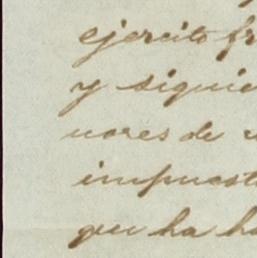 ejercito fr
y siguie
nores de
impuest
que ha h